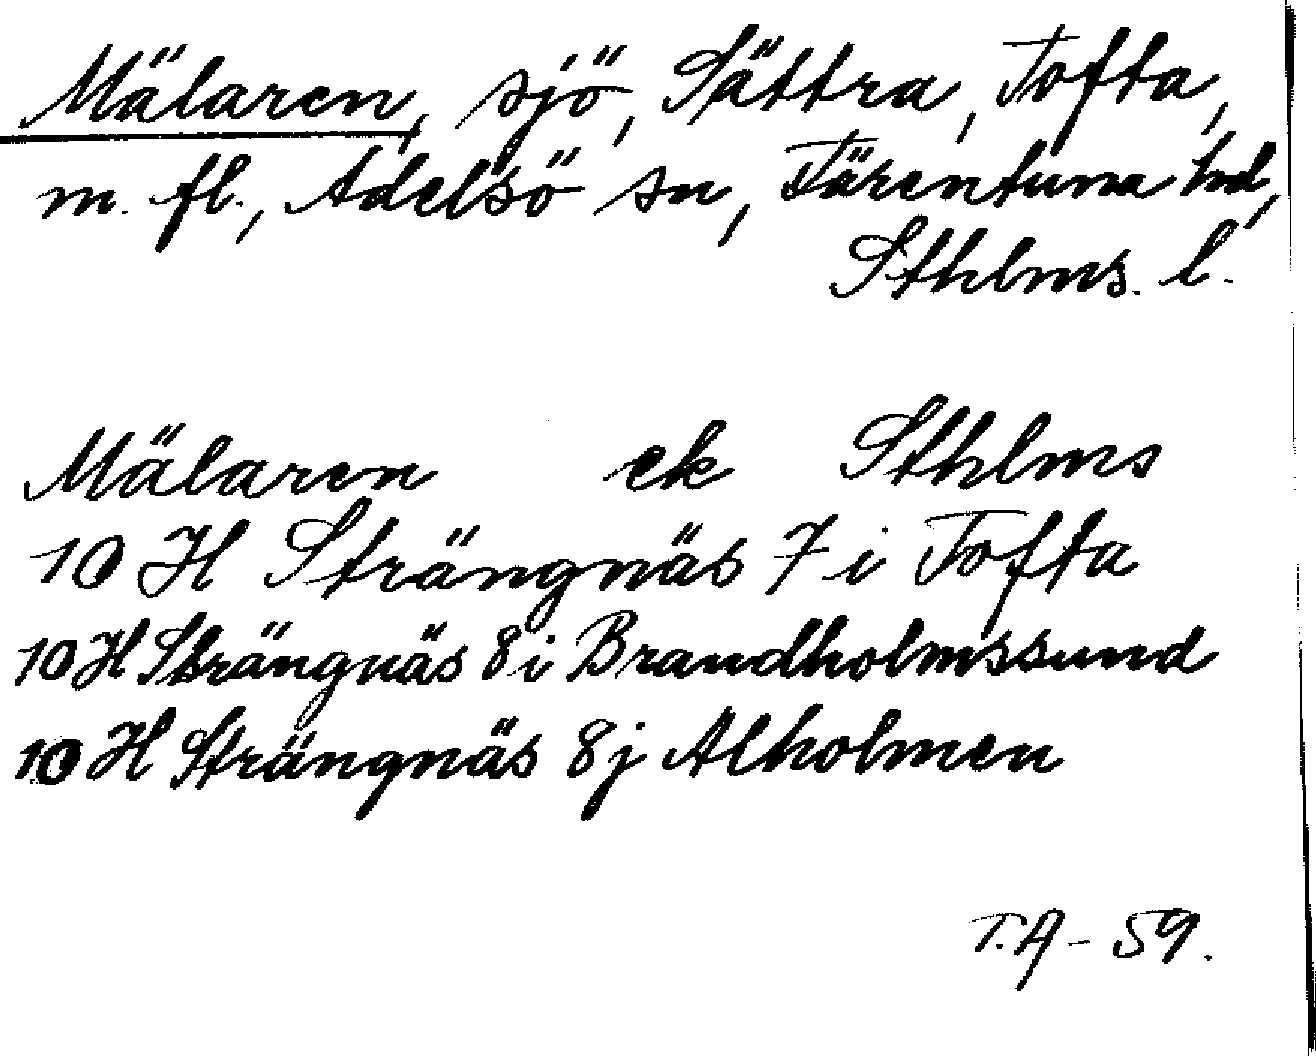 Mälaren, sjö, Sättra, Tofta,
m. fl., Adelsö sn, Färentuna hd,
Sthlms. l.
Mälaren ek Sthlms
10 H Strängnäs 7 i Tofta
10 H Strängnäs 8 i Brandholmssund
10 H Strängnäs 8 j Alholmen
T.A - 59.